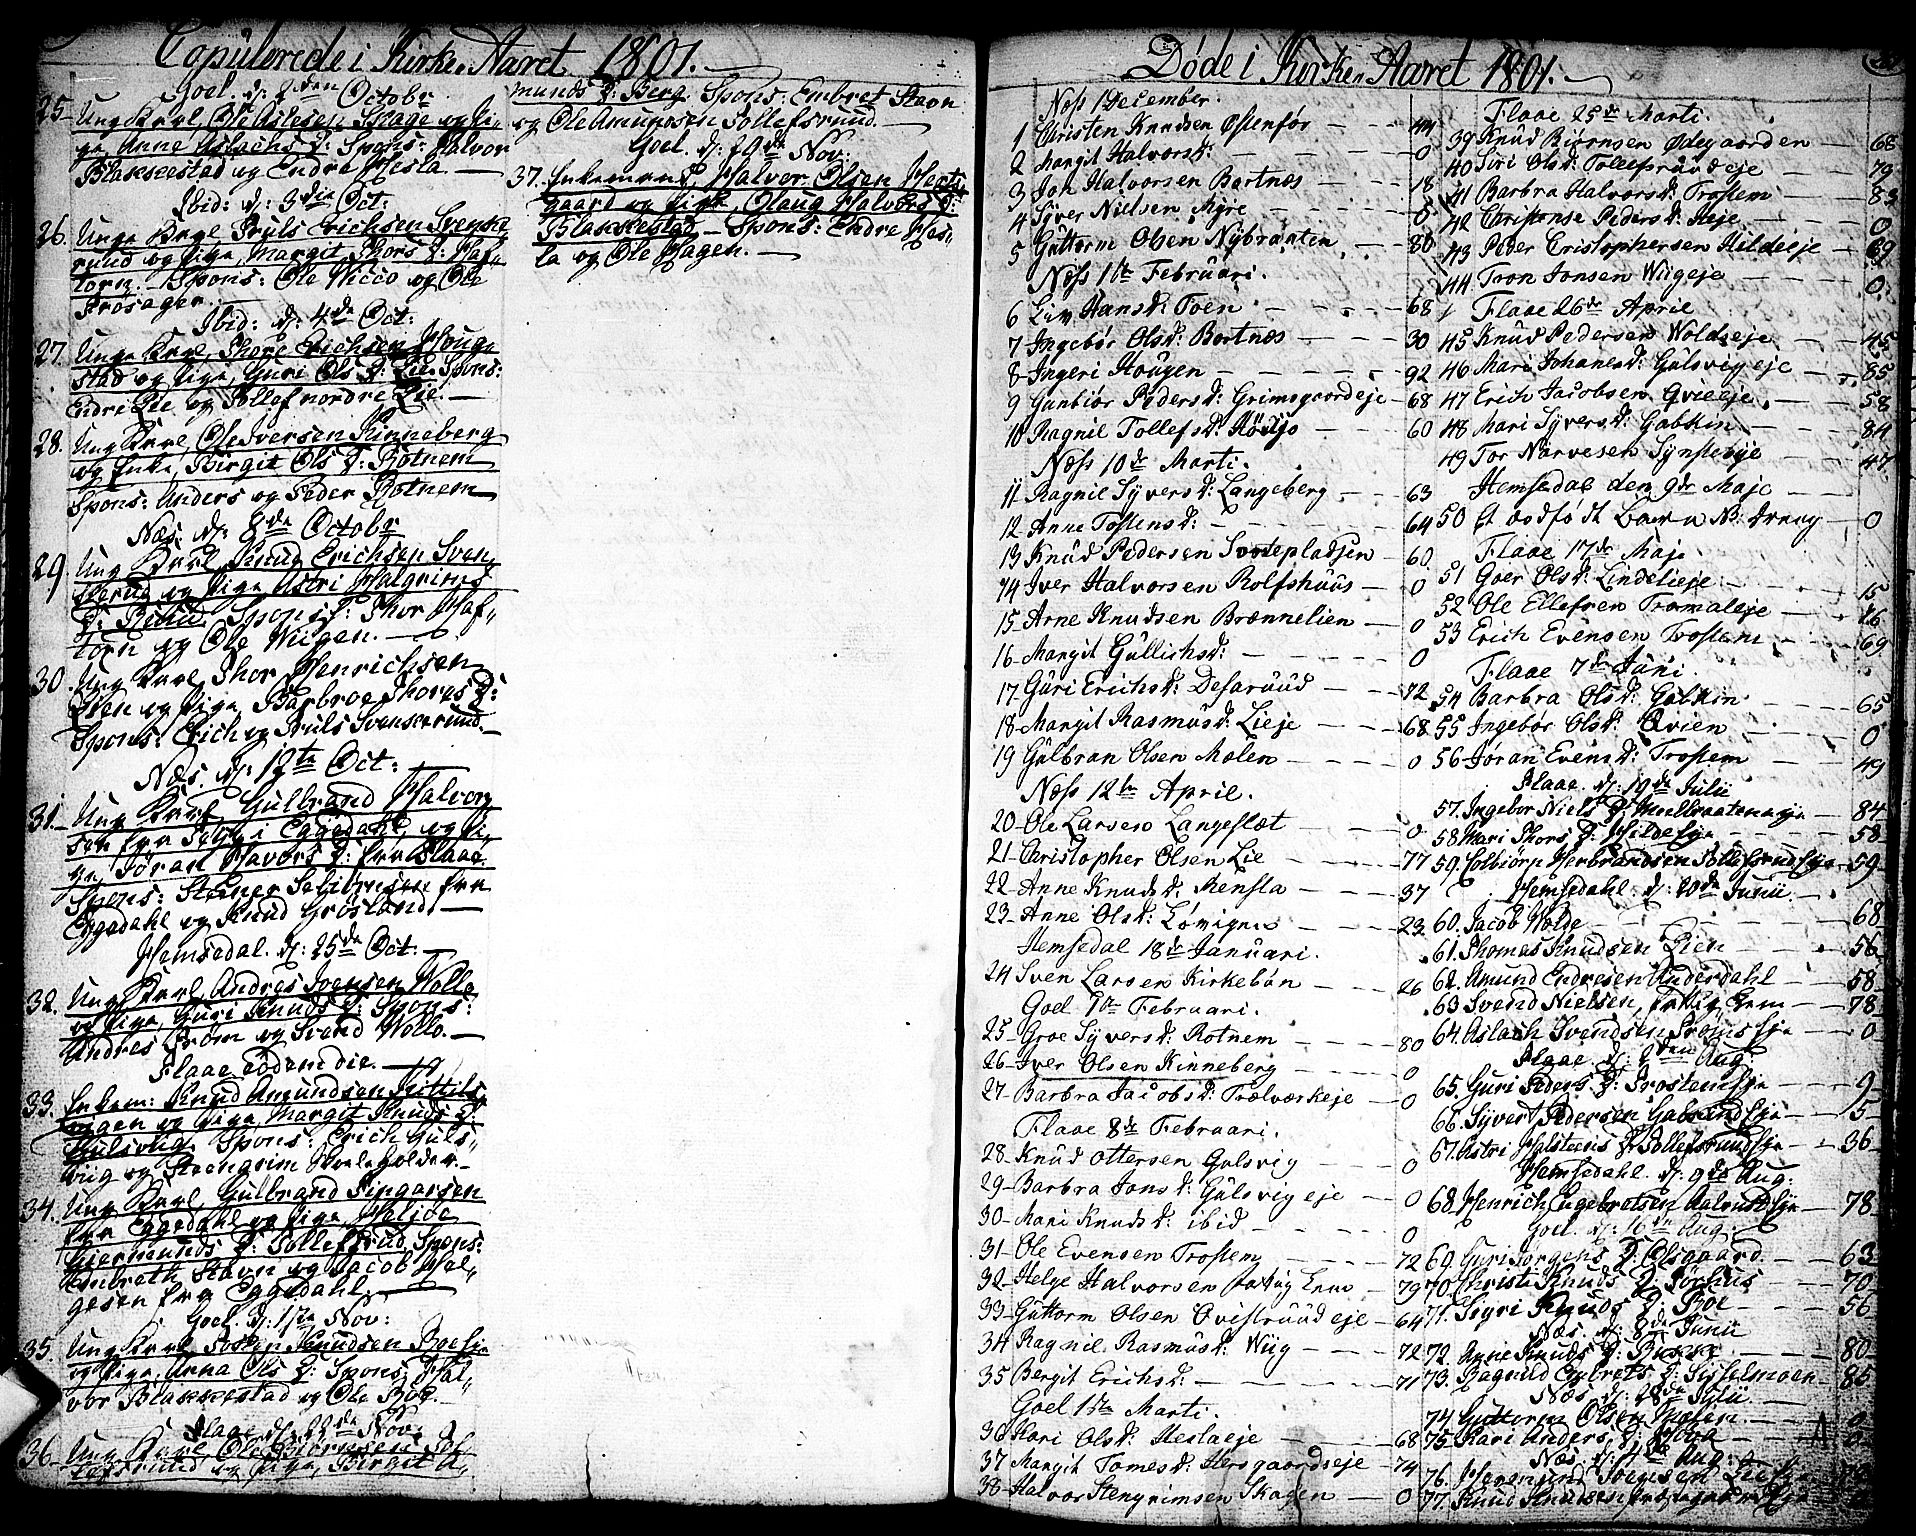 Copulerede i Kirke Aaret 1801.
Goel. d: 2den Octobr
25. Ung Karl, Ole Aslesen Hage og Pi-
ge, Anne Aslachs D: Spons: Halvor
Blakkestad og Endre Hesla.
Ibid: d: 3die Oct:
26. Unge Karl Truls Erichsen Svenke
rud og Pige, Margit Thors D: Haf-
torn. Spons: Ole Wicco og Ole
Frosager.
Ibid: d: 4de Oct:
27. Unge Karl, Thore Erichsen Houg
stad og Pige, Guri Ols D: Lie. Spons:
Endre Lie og Tollef nordre Lie.
28. Ung Karl, Ole Iversen Kinneberg
og Enke, Birgit Ols D: Rotnem
Spons: Anders og Peder Rotnem
Næs. d: 8de Octobr
29. Ung Karl, Knud Erichsen Sven-
kerud og Pige Astri Halgrims
D: Spons: Thor Haf-
torn og Ole Wiigen.
30. Ung Karl Thor Henrichsen
Lien og Pige, Barbroe Thores D:
Spons: Erich og Truls Svenkerud.
Næs. d: 12te Oct:
31. Ung Karl Gulbrand Halvor
sen fra i Eggedahl, og Pi-
ge, Jøran Havors D: fra Flaae.
Spons: Steener fra
Eggedahl og Knud Grøsland.
Hemsedal. d: 25de Oct.
32. Ung Karl, Andres Joensen Wollo
og Pige, Guri Knuds D: Spons:
Andres Trøm og Svend Wollo.
Flaae eodem die.
33. Enkem: Knud Amundsen Kittils
og Pige, Margit Knuds D:
Gulsvig. Spons: Erich Guls-
viig og Steengrim
34. Ung Karl, Gulbrand
fra Eggedahl og Pige, Heljoe
D: Tollefsrud. Spons:
Embreth Stavn og Jacob Hal-
gesen fra Eggedahl.
Goel. d: 1ste Nov:
35. Ung Karl Tosten Knudsen Boe
og Pige, Anna Ols D: Spons: Hal-
vor Blakkestad og Ole Boe.
Flaae d: 22de Nov:
36. Ung Karl, Ole Biørnsen Tol
lefsrud og Pige, Birgit A-
munds D: Berg. Spons: Embret Stavn
og Ole Amundsen Tollefsrud.
Goel. d: 29de Nov:
37. Enkemand, Halvor Olsen
gaard og Pige, Olaug Halvors D:
Blakkestad. Spons: Endre Hes-
la og Ole Hagen.
Døde i Kirke Aaret 1801.
Næss 1 December.
1 Christen Knudsen Østenfor 44
2 Margit Halvorsd: 0
3 Joh Halvorsen Bortnæs 18
4 Syver Nielsen Myre 0
5 Guttorm Olsen Nybraaten 80
Næss 1te Februari.
6 Liv Hansd: Toen 68
7 Ingebor Olsd: Bortnæs 30
8 Ingeri Hougen 92
9 Gunbiør Pedersd: Grimsgaordeje 68
10 Ragnil Tollefsd: Rødjo 60
Næss 10de Marti.
11 Ragnil Syversd: Langeberg 63
12 Anne Tostensd: 64
13 Knud Pedersen Svartepladsen 60
14 Iver Halvorsen Rolfshuus 0
15 Arne Knudsen Brennelien 0
16 Margit Gullichsd: 0
17 Guri Erichsd: Desaruud 72
18 Margit Rasmusd: Lieje 68
19 Gulbran Olsen Molen 0
Næss 12te April.
20 Ole Larsen Langeslæt 0
21 Christopher Olsen Lie 77
22 Anne Knudsd: Mensla 37
23 Anne Olsd: Løvignes 23
Hemsedal 18de Januari.
24 Sven Larsen Kirkebøn 26
Goel 1te Februari.
25 Groe Syversd: Rotnem 80
26 Iver Olsen Kinneberg 0
27 Barbra Jacobsd: Trælværkeje 0
Flaae 8de Februari.
28 Knud Ottersen Gulsvig 0
29 Barbra Jonsd: Gulsvigeje 0
30 Mari Knudsd: ibid 0
31 Ole Evensen Trostem 72
32 Helge Halvorsen Fattig Lem 79
33 Guttorm Olsen Qvistruudeje 64
34 Ragnil Rasmusd: Wiig 72
35 Bergit Erichsd: 71
Goel 1ste Marti.
36 Kari Olsd: Heslaeje 68
37 Margit Tomesd: Hersgaordseje 74
38 Halvor Stengrimsen Skagen 0
Flaae 25de Marti.
39 Knud Biørnsen Ødegaarden 68
40 Siri Olsd: Tollefsruudeje 79
41 Barbra Halvorsd: Trostem 83
42 Christense Pedersd: Heje 0
43 Peder Cristophersen Hildeeje 69
44 Tron Jonsen Wiigeje 0
Flaae 26de April
45 Knud Pedersen Woldseje 45
46 Mari Johanesd: Gulsvigeje 85
47 Erich Jacobsen Qvieeje 58
48 Mari Syversd: Gabkin 84
49 Tor Narvesen Synsteeje 47
Hemsedal den 9de Maje
50 Et dødfødt Barn No: 0
Flaae 17de Maje
51 Goer Olsd: Lindelieje 15
52 Ole Ellefsen Tromaleje 76
53 Erich Evensen Trostem 69
Flaae 7de Juni.
54 Barbra Olsd: Gabkin 65
55 Ingebor Olsd: Qvien 0
56 Jøran Evensd: Trostem 49
Flaae d: 19de Julii
57. Ingebor Niels D: 84
58 Mari Thors D: Hilde Eje 58
59. Colbiørn Herbrandsen Tollefsrud Eje 59
Hemsedahl d: 20de Junii
60. Jacob Wolde 68
61. Thomas Knudsen Lien 56
62. Amund Endresen Underdahl 58
63 Svend Nielsen, Fattig Lem 78
64. Aslach Svendsen Trøms Eje 0
Flaae. d: 2den Aug:
65. Guri Peders D: Trostem Eje 9
66. Syvert Pedersen Gabrud Eje 5
67. Astri Halsteens D: Tollefsrud Eje 36
Hemsedahl d: 9de Aug:
68. Henrich Engebretsen Eje 78
Goel. d: 16de Aug:
69. Guri Torgers D: Olsgaard 63
70. Christi Knuds D: 70
71. Sigri Knuds D: Boe 56
Næs. d: 8de Junii
72. Anne Knuds D: 80
73. Ragnild Engebrets D: Sisselmoen 85
Næs d: 28de Julii
74 Guttorm Olsen 0
75 Kari Anders D: 0
Næs. d: 4de Aug:
76. Joensen
77. Knud Knudsen